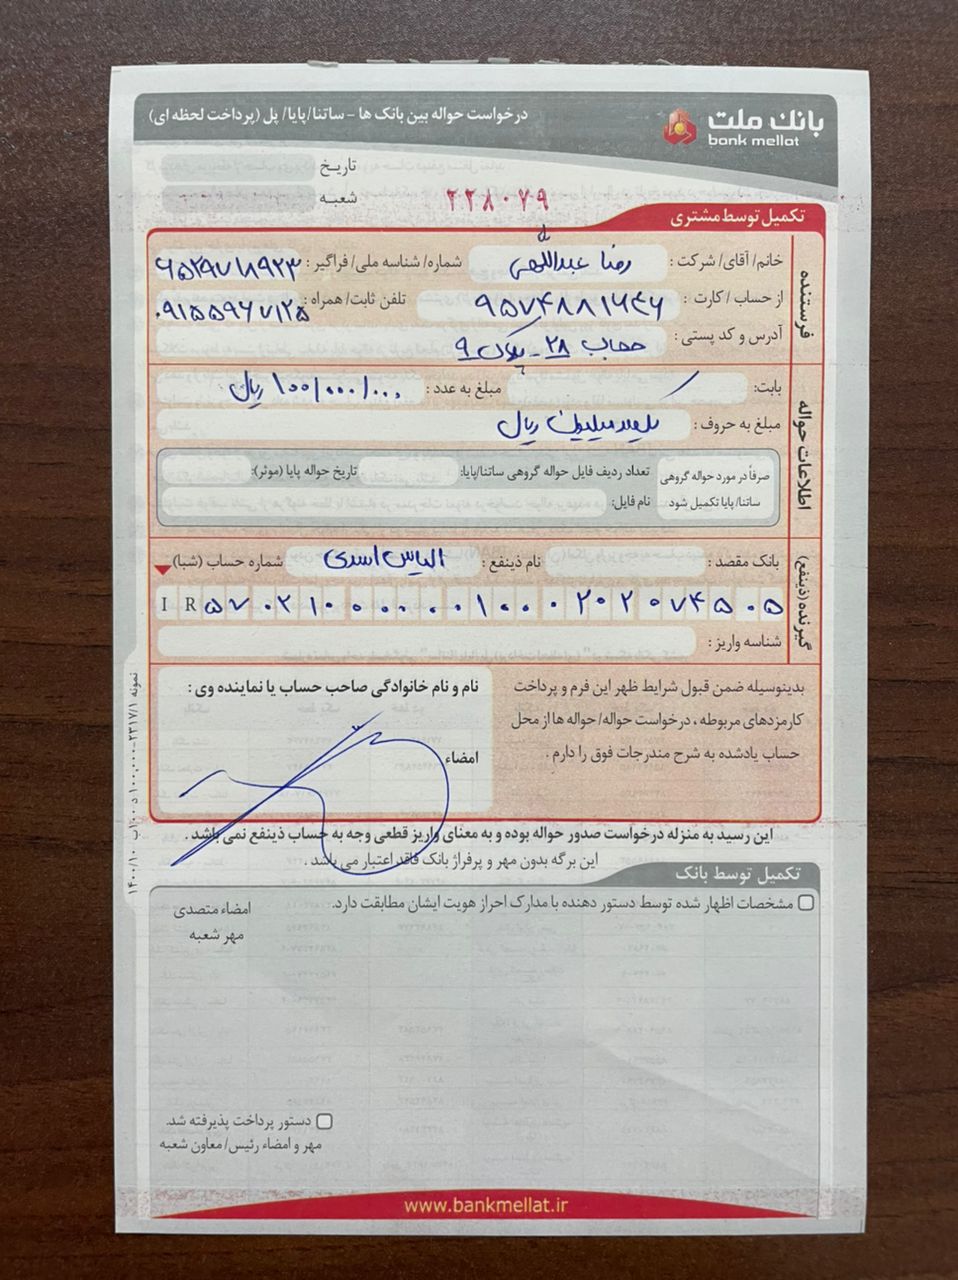 بانك ملت
bank mellat
درخواست حواله بین بانک ها - ساتنا/پایا/ پل (پرداخت لحظه ای)
تاریخ
شعبه
۲۲۸۰۷۹
تکمیل توسط مشتری
فرستنده
خانم/ آقای/ شرکت : رضا عبداللهی شماره/ شناسه ملی/ فراگیر : ۶۵۲۹۷۱۸۹۲۳
از حساب / کارت : ۹۵۷۴۸۸۱۶۴۶ تلفن ثابت/ همراه : ۰۹۱۵۵۹۶۷۱۲۵
آدرس و کد پستی : ۲۸ - پلاک ۹
اطلاعات حواله
بابت: مبلغ به عدد : ۱۰۰/۰۰۰/۰۰۰ ریال
مبلغ به حروف : یکصد میلیون ریال
صرفاً در مورد حواله گروهی ساتنا/ پایا تکمیل شود
تعداد ردیف فایل حواله گروهی ساتنا/پایا: تاریخ حواله پایا (موثر):
نام فایل:
گیرنده (ذینفع)
بانک مقصد : نام ذینفع : الیاس اسدی شماره حساب (شبا)
IR ۵۷۰۲۱۰۰۰۰۰۰۰۱۰۰۰۲۰۲۰۷۴۵۰۵
شناسه واریز :
بدینوسیله ضمن قبول شرایط ظهر این فرم و پرداخت
کارمزدهای مربوطه ، درخواست حواله/ حواله ها از محل
حساب یادشده به شرح مندرجات فوق را دارم .
نام و نام خانوادگی صاحب حساب یا نماینده وی :
امضاء
این رسید به منزله درخواست صدور حواله بوده و به معنای واریز قطعی وجه به حساب ذینفع نمی باشد .
این برگه بدون مهر و پرفراژ بانک فاقد اعتبار می باشد .
تکمیل توسط بانک
مشخصات اظهار شده توسط دستور دهنده با مدارک احراز هویت ایشان مطابقت دارد.
امضاء متصدی
مهر شعبه
دستور پرداخت پذیرفته شد.
مهر و امضاء رئیس/ معاون شعبه
نمونه ۲۳۱۷/۱-۱۰۰.۰۰۰ د ۱۰۰ب ۱۴۰۰/۱۰
www.bankmellat.ir